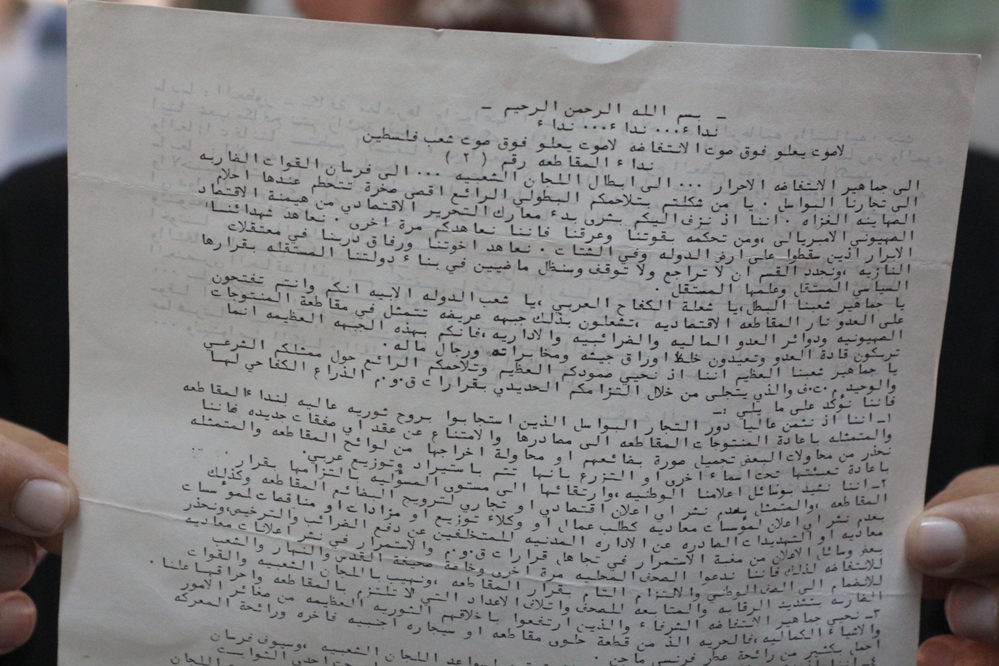 ـ بسم الله الرحمن الرحيم ـ
نداء ... نداء ... نداء
لاصوت يعلو فوق صوت الانتفاضه لاصوت يعلو فوق صوت شعب فلسطين
نداء المقاطعه رقم ( ٢ )
الى جماهير الانتفاضه الاحرار ... الى ابطال اللجان الشعبيه ... الى فرسان القوات الضاربه
الى تجارنا البواسل . يا من شكلتم بتلاحمكم البطولي الرائع اقسى صخرة تتحطم عندها احلام
الصهاينه الغزاه . اننا اذ نزف اليكم بشرى بدء معارك التحرير الاقتصادي من هيمنة الاقتصاد
الصهيوني الامبريالي ،ومن تحكمه بقوتنا وعرقنا فاننا نعاهدكم مرة اخرى . نعاهد شهدائنا
الابرار الذين سقطوا على ارض الدوله وفي الشتات . نعاهد اخوتنا ورفاق دربنا في معتقلات
النازيه ،ونجدد القسم ان لا تراجع ولا توقف وسنظل ماضيين في بناء دولتنا المستقله بقرارها
السياسي المستقل وعلمها المستقل .
يا جماهير شعبنا البطل ،يا شعلة الكفاح العربي ،يا شعب الدوله الابيه انكم وانتم تفتحون
على العدو نار المقاطعه الاقتصاديه ،تشعلون بذلك جبهه عريضه تتمثل في مقاطعة المنتوجات
الصهيونيه ودوائر العدو الماليه والضرائبيه والاداريه ،فانكم بهذه الجبهه العظيمه انما
تربكون قادة العدو وتعيدون خلط اوراق جيشه ومخابراته ورجال ماله .
يا جماهير شعبنا العظيم اننا اذ نحيي صمودكم العظيم وتلاحمكم الرائع حول ممثلكم الشرعي
والوحيد م.ت.ف والذي يتجلى من خلال التزامكم الحديدي بقرارات ق.و.م الذراع الكفاحي لها
فاننا نؤكد على ما يلي :ـ
١ـ اننا اذ نثمن عاليا دور التجار البواسل الذين استجابوا بروح ثوريه عاليه لنداء المقاطعه
والمتمثله باعادة المنتوجات المقاطعه الى مصادرها والامتناع عن عقد اي صفقات جديده فاننا
نحذر من محاولات البعض تجميل صورة بضائعهم او محاولة اخراجها من لوائح المقاطعه والمتمثله
باعادة تعبئتها تحت اسماء اخرى او التزرع بانها تتم باستيراد وتوزيع عربي .
٢ـ اننا نشيد بوسائل اعلامنا الوطنيه ،وارتقائها الى مستوى المسؤليه بالتزامها بقرار
المقاطعه ،والمتمثل بعدم نشر اي اعلان اقتصادي او تجاري لترويج البضائع المقاطعه وكذلك
بعدم نشر اي اعلان لمؤسسات معاديه كطلب عمال او وكلاء توزيع او مزادات او مناقصات لمؤسسات
معاديه او التهديدات الصادره عن الاداره المدنيه للمتخلفين عن دفع الضرائب والترخيص ،ونحذر
بعض وسائل الاعلان من مغبة الاستمرار في تجاهل قرارات ق.و.م والاستمرار في نشر اعلانات معاديه
للانتفاضه لذلك فاننا ندعوا الصحف المحليه مرة اخرى وخاصة صحيفة القدس والنهار والشعب
للانضمام الى الصف الوطني والالتزام التام بقرار المقاطعه ،ونهيب باللجان الشعبيه والقوات
الضاربه بتشديد الرقابه والمتابعه للصحف واتلاف الاعداد التي لا تلتزم بالمقاطعه واحراقها علنا .
٣ـ نحيي جماهير الانتفاضه الشرفاء والذين ارتفعوا باخلاقهم الثوريه العظيمه من صغائر الامور
والاشياء الكماليه ،فالحريه الذ من قطعة حلوى مقاطعه او سيجاره اجنبيه فاخره ورائحة المعركه
اجمل بكثير من رائحة عطر فرنسي ماجن .
بسواعد اللجان الشعبيه ،وسيوف فرسان